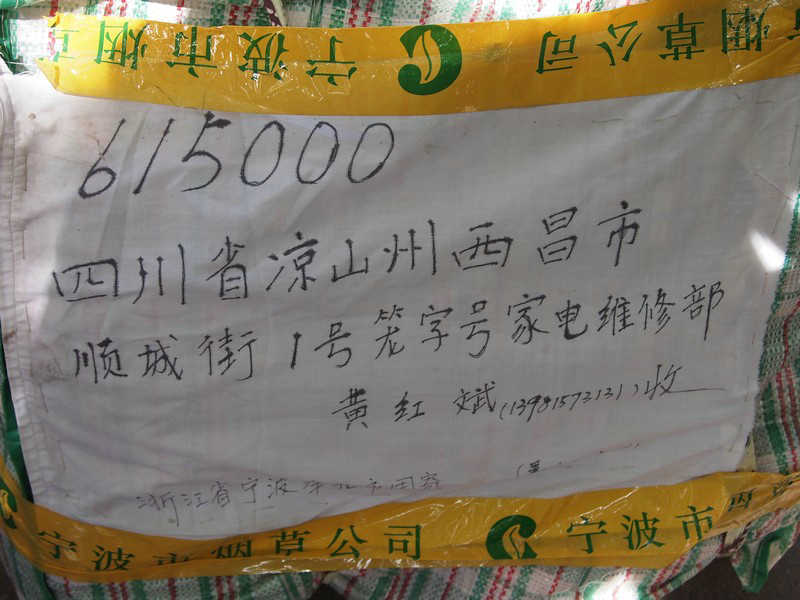 宁波市烟草公司
615000
四川省凉山州西昌市
顺城街1号笼字号家电维修部
黄红斌(13981573131)收
浙江省宁波
宁波市烟草公司 宁波市